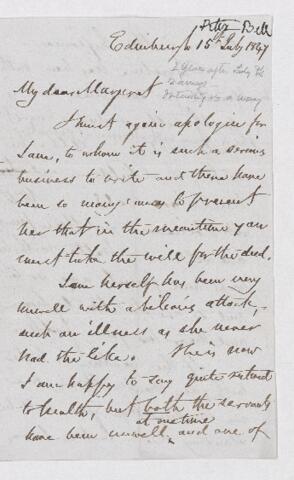 Peter Bell
Edinburgh 15th July 1847
2 years after
My dear Margaret
I must again apologise for
Jane, to whom it is such a serious
business to write and there have
been so many to prevent
her that in the meantime you
must take the will for the deed.
Jane herself has been very
unwell with a bilious attack,
such an illness as she never
had the like. She is now
I am happy to say quite restored
to health, but both the servants
at one time
have been unwell, and one of